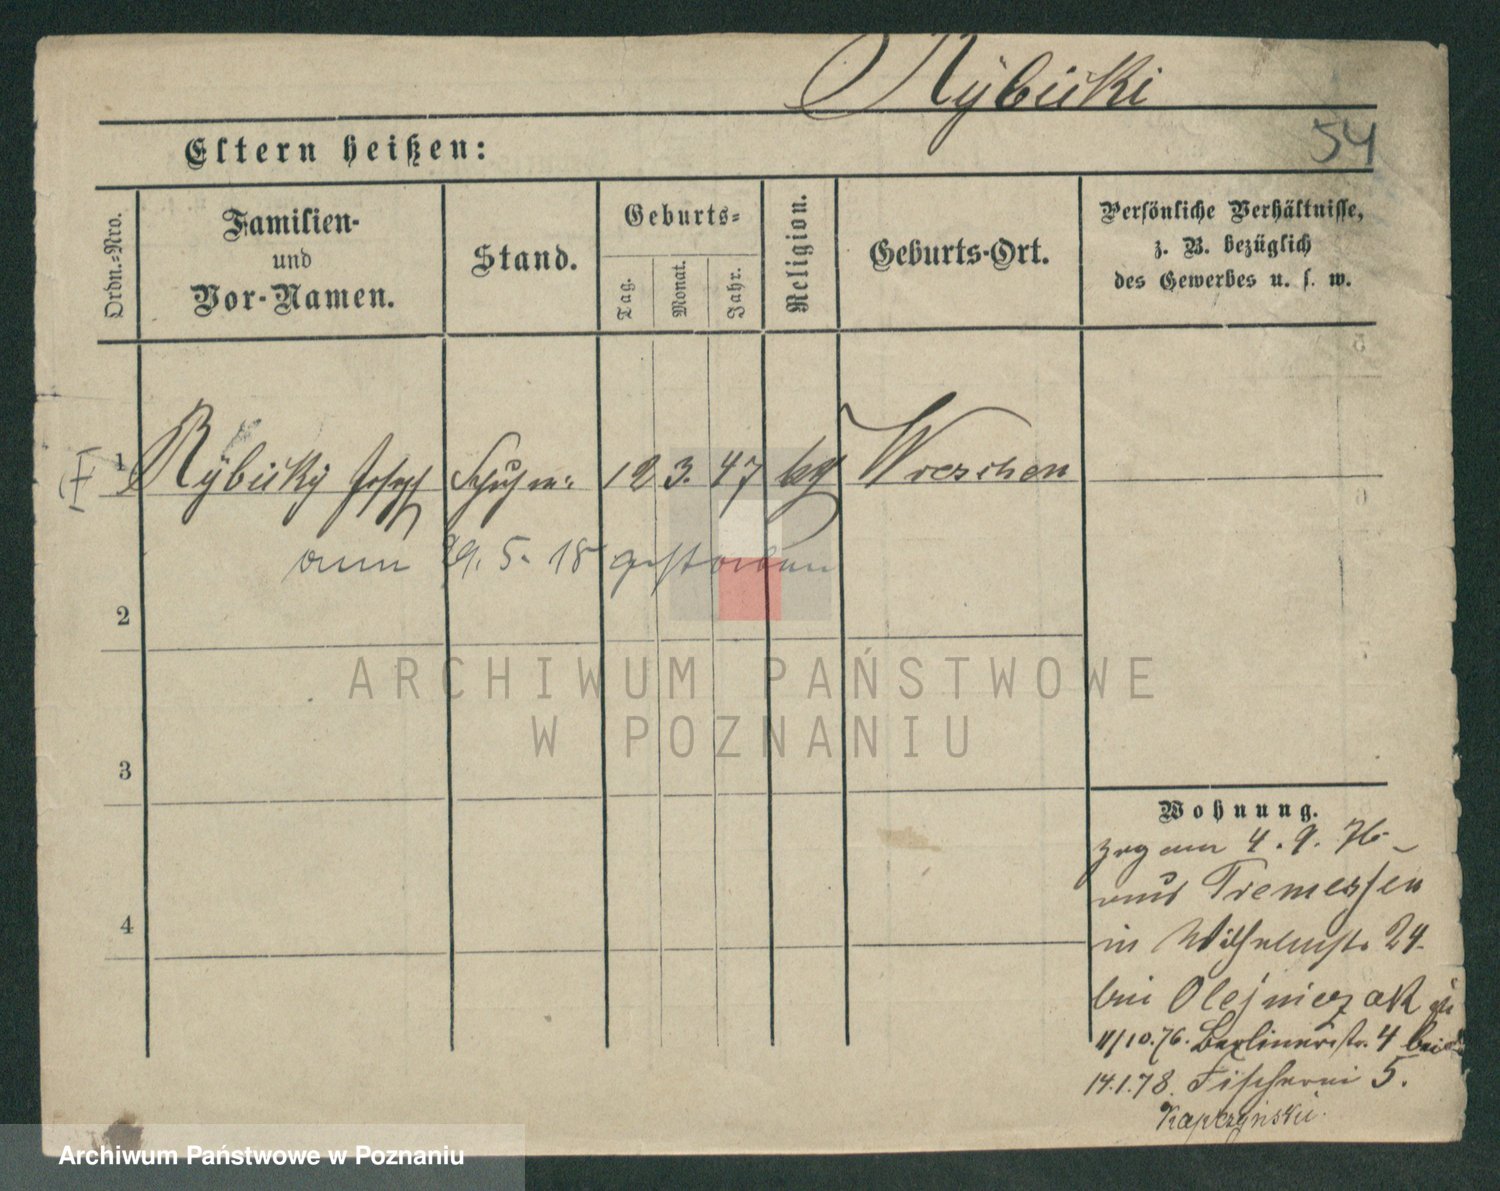 Rybicki
54
Eltern heißen:
Ordn.-Nro.
Familien-
und
Vor-Namen.
Stand.
Geburts-
Tag.
Monat.
Jahr.
Religion.
Geburts-Ort.
Persönliche Verhältnisse,
z. B. bezüglich
des Gewerbes u. s. w.
1 Rybicky Joseph Schuhm: 12 3. 47 Wreschen
am 29. 5. 18 gestorben
2
3
4
Wohnung.
zog am 4. 9. 76
aus Tremessen
in Wilhelmstr. 24
bei Olejniczak
11/10.76. Berlinerstr. 4 bei
14.1.78. Fischerei 5.
Kapczynski.
ARCHIWUM PAŃSTWOWE
W POZNANIU
Archiwum Państwowe w Poznaniu